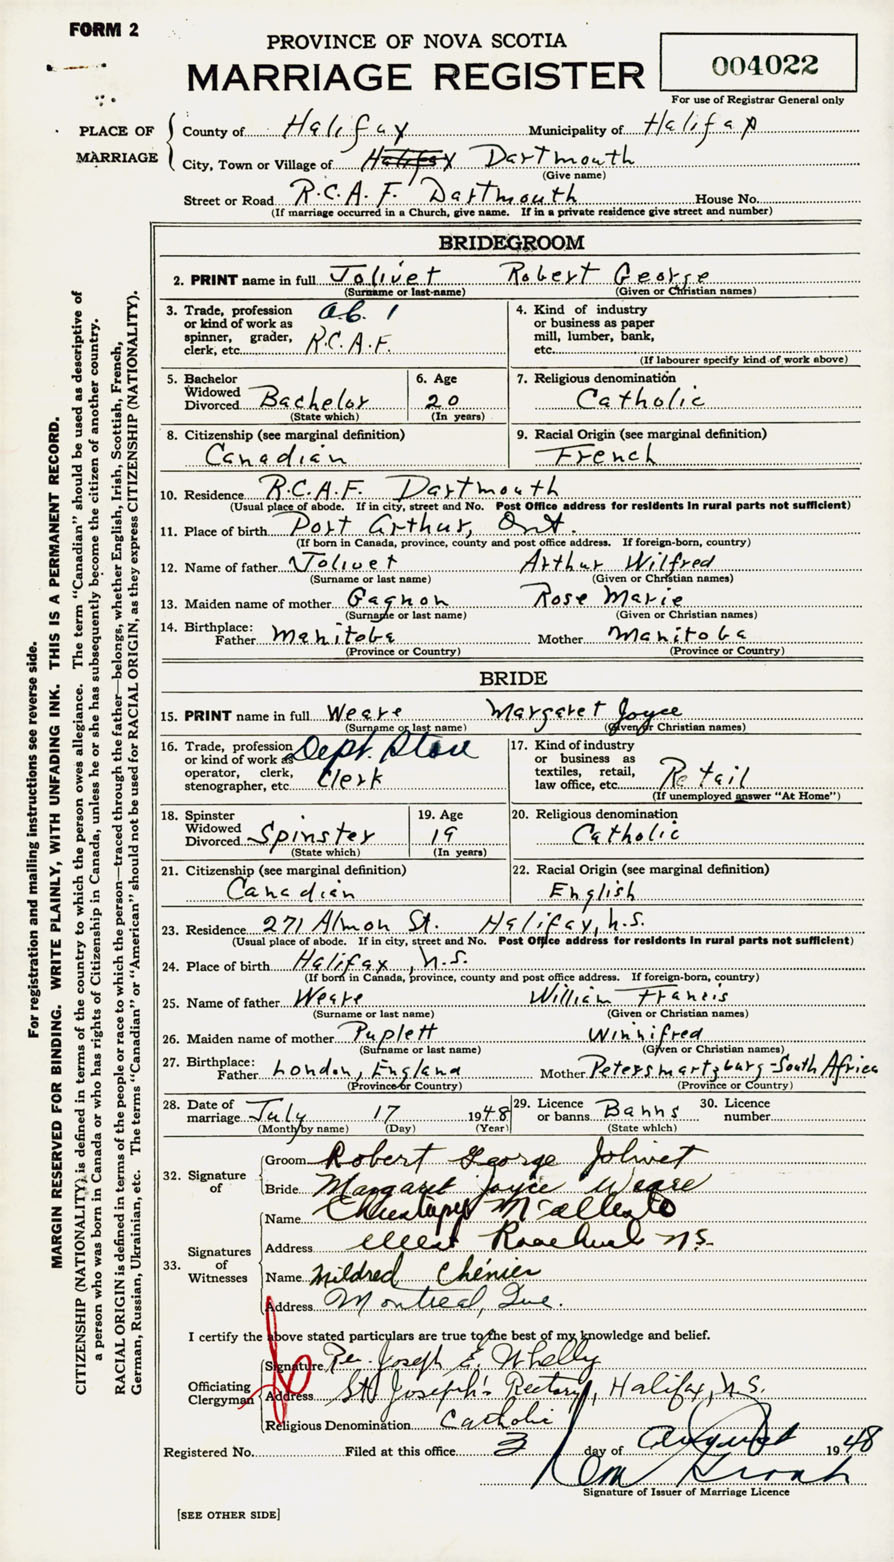 FORM 2
PROVINCE OF NOVA SCOTIA
MARRIAGE REGISTER
004022
For use of Registrar General only
PLACE OF MARRIAGE
County of Halifax Municipality of Halifax
City, Town or Village of Halifax Dartmouth
(Give name)
Street or Road R.C.A.F. Dartmouth House No.
(If marriage occurred in a Church, give name. If in a private residence give street and number)
BRIDEGROOM
2. PRINT name in full Jolivet Robert George
(Surname or last-name) (Given or Christian names)
3. Trade, profession or kind of work as spinner, grader, clerk, etc. R.C.A.F.
4. Kind of industry or business as paper mill, lumber, bank, etc.
(If labourer specify kind of work above)
5. Bachelor Widowed Divorced Bachelor
(State which)
6. Age 20
(In years)
7. Religious denomination Catholic
8. Citizenship (see marginal definition) Canadian
9. Racial Origin (see marginal definition) French
10. Residence R.C.A.F. Dartmouth
(Usual place of abode. If in city, street and No. Post Office address for residents in rural parts not sufficient)
11. Place of birth Port Arthur, Ont.
(If born in Canada, province, county and post office address. If foreign-born, country)
12. Name of father Jolivet Arthur Wilfred
(Surname or last name) (Given or Christian names)
13. Maiden name of mother Gagnon Rose Marie
(Surname or last name) (Given or Christian names)
14. Birthplace: Father Manitoba Mother Manitoba
(Province or Country) (Province or Country)
BRIDE
15. PRINT name in full Weare Margaret Joyce
(Surname or last name) (Given or Christian names)
16. Trade, profession or kind of work as operator, clerk, stenographer, etc. Dept. Store Clerk
17. Kind of industry or business as textiles, retail, law office, etc. Retail
(If unemployed answer "At Home")
18. Spinster Widowed Divorced Spinster
(State which)
19. Age 19
(In years)
20. Religious denomination Catholic
21. Citizenship (see marginal definition) Canadian
22. Racial Origin (see marginal definition) English
23. Residence 271 Almon St. Halifax, N.S.
(Usual place of abode. If in city, street and No. Post Office address for residents in rural parts not sufficient)
24. Place of birth Halifax, N.S.
(If born in Canada, province, county and post office address. If foreign-born, country)
25. Name of father Weare William Francis
(Surname or last name) (Given or Christian names)
26. Maiden name of mother Puplett Winnifred
(Surname or last name) (Given or Christian names)
27. Birthplace: Father London, England Mother Petersmartzburg-South Africa
(Province or Country) (Province or Country)
28. Date of marriage July 17 1948
(Month by name) (Day) (Year)
29. Licence or banns Banns
(State which)
30. Licence number
32. Signature of
Groom Robert George Jolivet
Bride Margaret Joyce Weare
33. Signatures of Witnesses
Name
Address West N.S.
Name Mildred Chénier
Address Montreal, Que.
I certify the above stated particulars are true to the best of my knowledge and belief.
Officiating Clergyman
Signature Rev. Joseph E. Whelly
Address St. Joseph's Rectory, Halifax, N.S.
Religious Denomination Catholic
Registered No. Filed at this office 3 day of August 1948
Signature of Issuer of Marriage Licence
[SEE OTHER SIDE]
For registration and mailing instructions see reverse side.
MARGIN RESERVED FOR BINDING. WRITE PLAINLY, WITH UNFADING INK. THIS IS A PERMANENT RECORD.
CITIZENSHIP (NATIONALITY) is defined in terms of the country to which the person owes allegiance. The term "Canadian" should be used as descriptive of
a person who was born in Canada or who has rights of Citizenship in Canada, unless he or she has subsequently become the citizen of another country.
RACIAL ORIGIN is defined in terms of the people or race to which the person—traced through the father—belongs, whether English, Irish, Scottish, French,
German, Russian, Ukrainian, etc. The terms "Canadian" or "American" should not be used for RACIAL ORIGIN, as they express CITIZENSHIP (NATIONALITY).